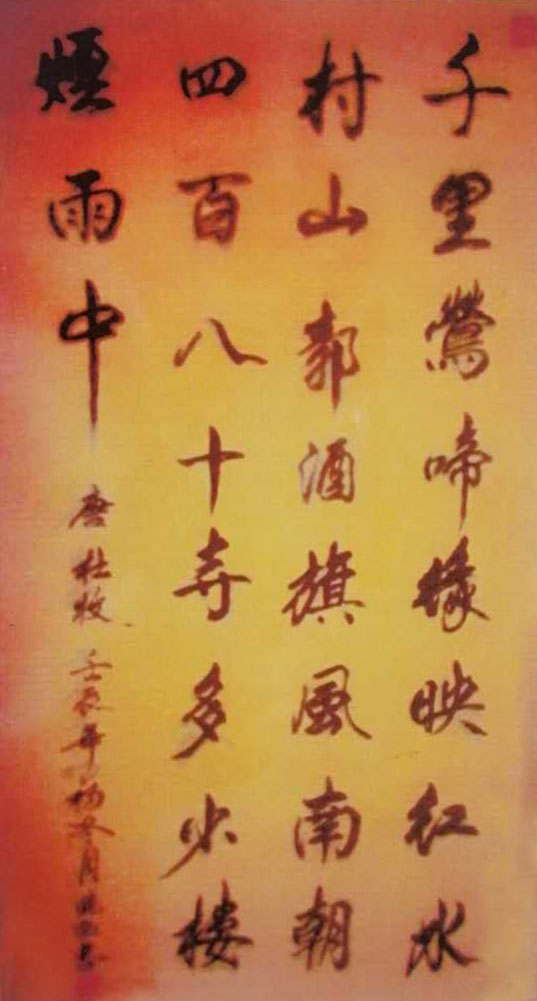 千里鶯啼緑映红水
村山郭酒旗風南朝
四百八十寺多少楼
煙雨中
唐杜牧 壬辰年初冬月